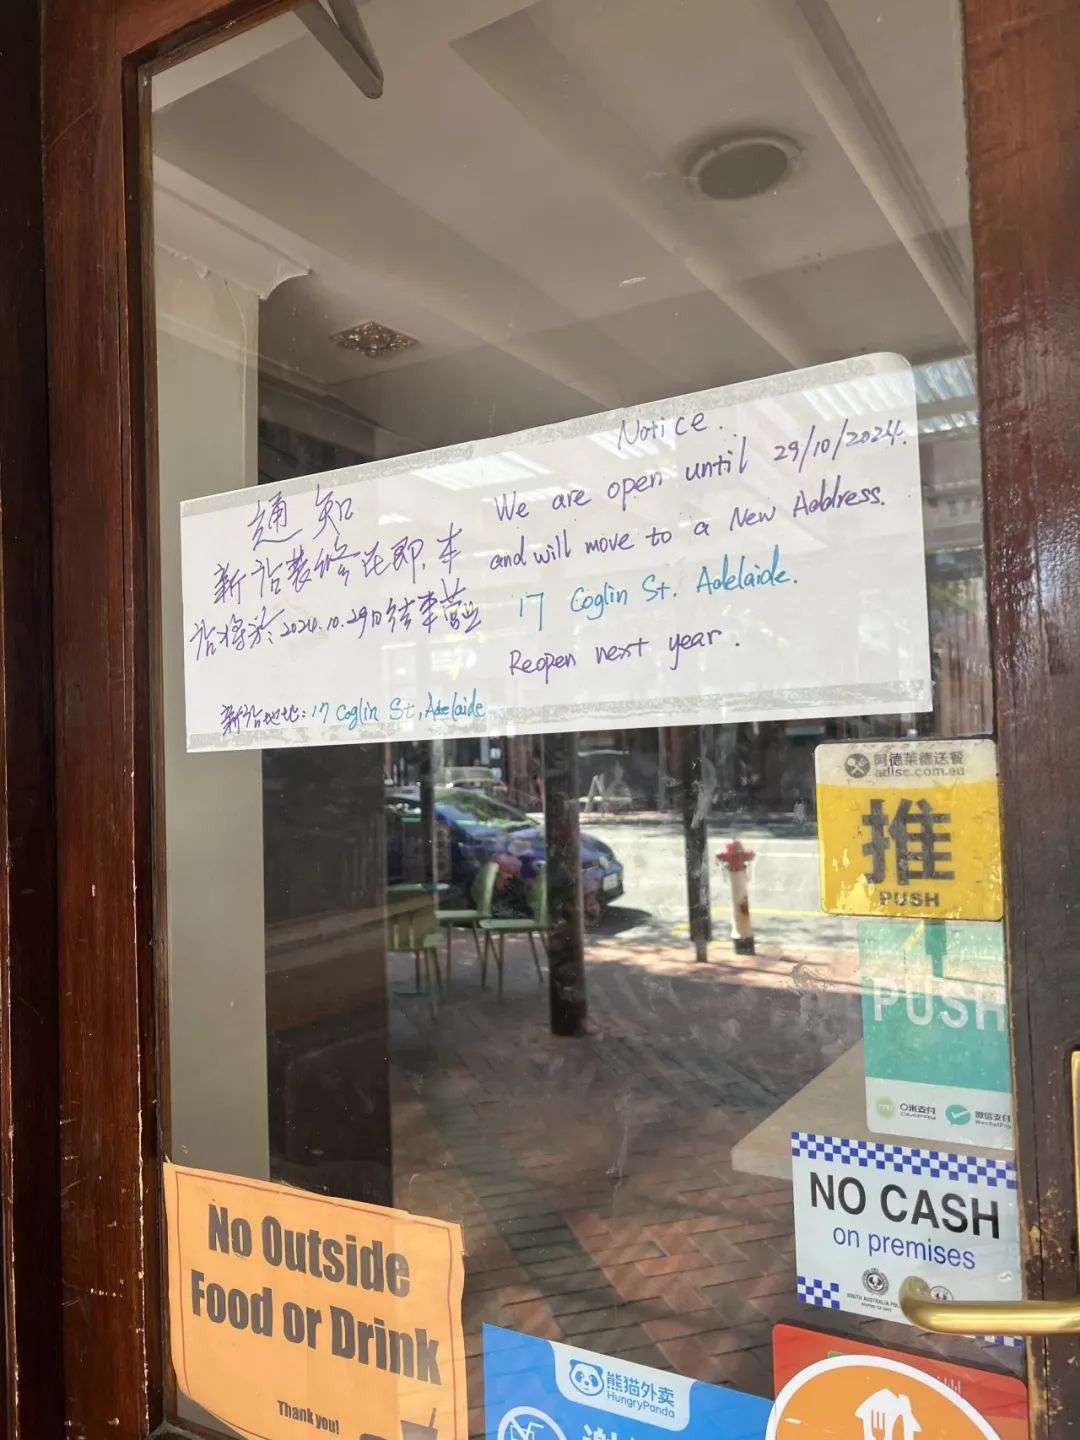 通知
新店装修在即，本
店将于2024.10.29日结束营业
新店地址：17 Coglin St, Adelaide
Notice.
We are open until 29/10/2024.
and will move to a New Address.
17 Coglin St. Adelaide.
Reopen next year.
阿德莱德送餐
adlsc.com.au
推
PUSH
PUSH
微信支付
WeChat Pay
NO CASH
on premises
SOUTH AUSTRALIA
No Outside
Food or Drink
Thank you!
熊猫外卖
HungryPanda